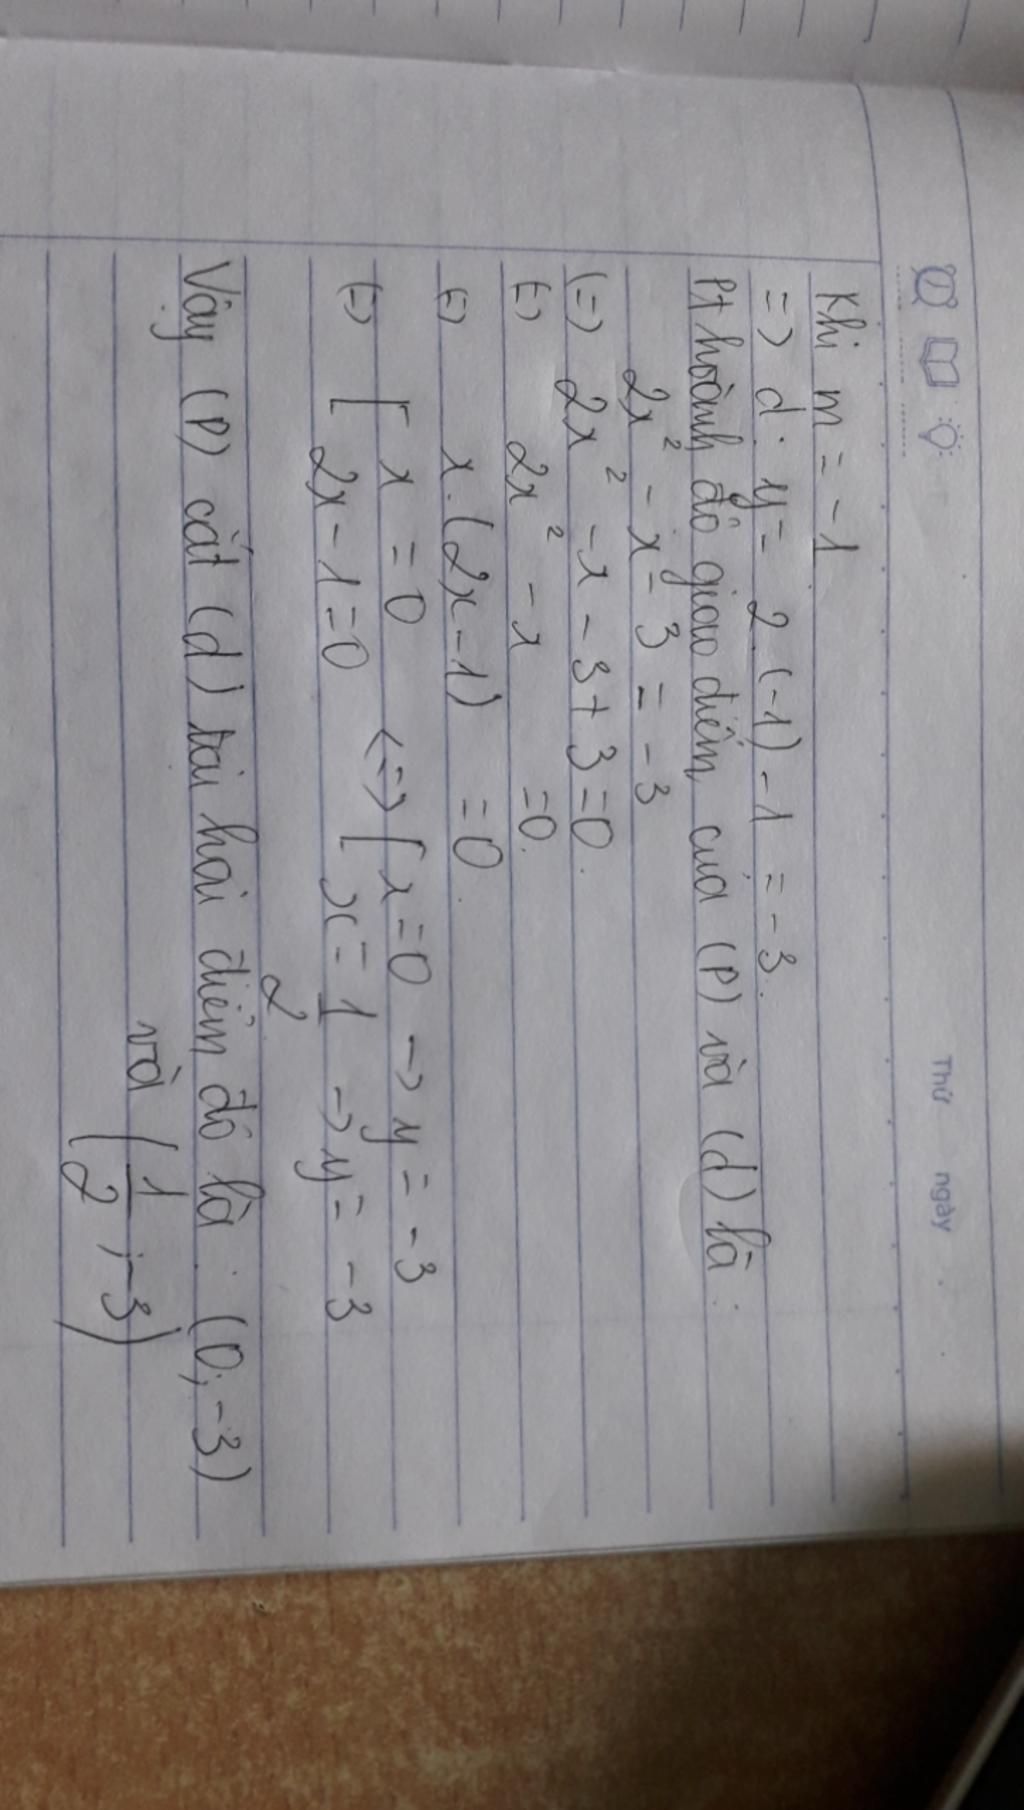 Thứ ngày
Khi m = -1
=> d: y = 2.(-1) - 1 = -3.
Pt hoành độ giao điểm của (P) và (d) là:
2x² - x - 3 = -3
(=) 2x² - x - 3 + 3 = 0.
(=) 2x² - x = 0.
(=) x.(2x - 1) = 0.
(=) [ x = 0 <=> [ x = 0 -> y = -3
2x - 1 = 0 x = 1/2 -> y = -3
Vậy (P) cắt (d) tại hai điểm đó là: (0; -3)
và (1/2; -3)